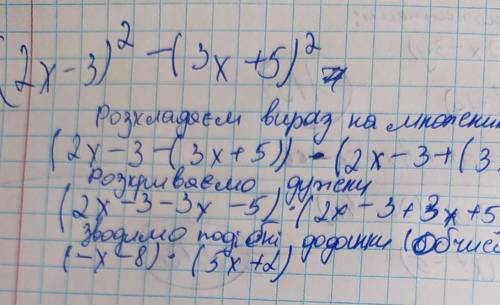 (2x-3)² -(3x+5)²
Розкладаєм вираз на множники
(2x-3-(3x+5)) · (2x-3+(3
Розкриваємо дужки
(2x-3-3x-5) · (2x-3+3x+5
Зводимо подібні доданки (Обчис
(-x-8) · (5x+2)